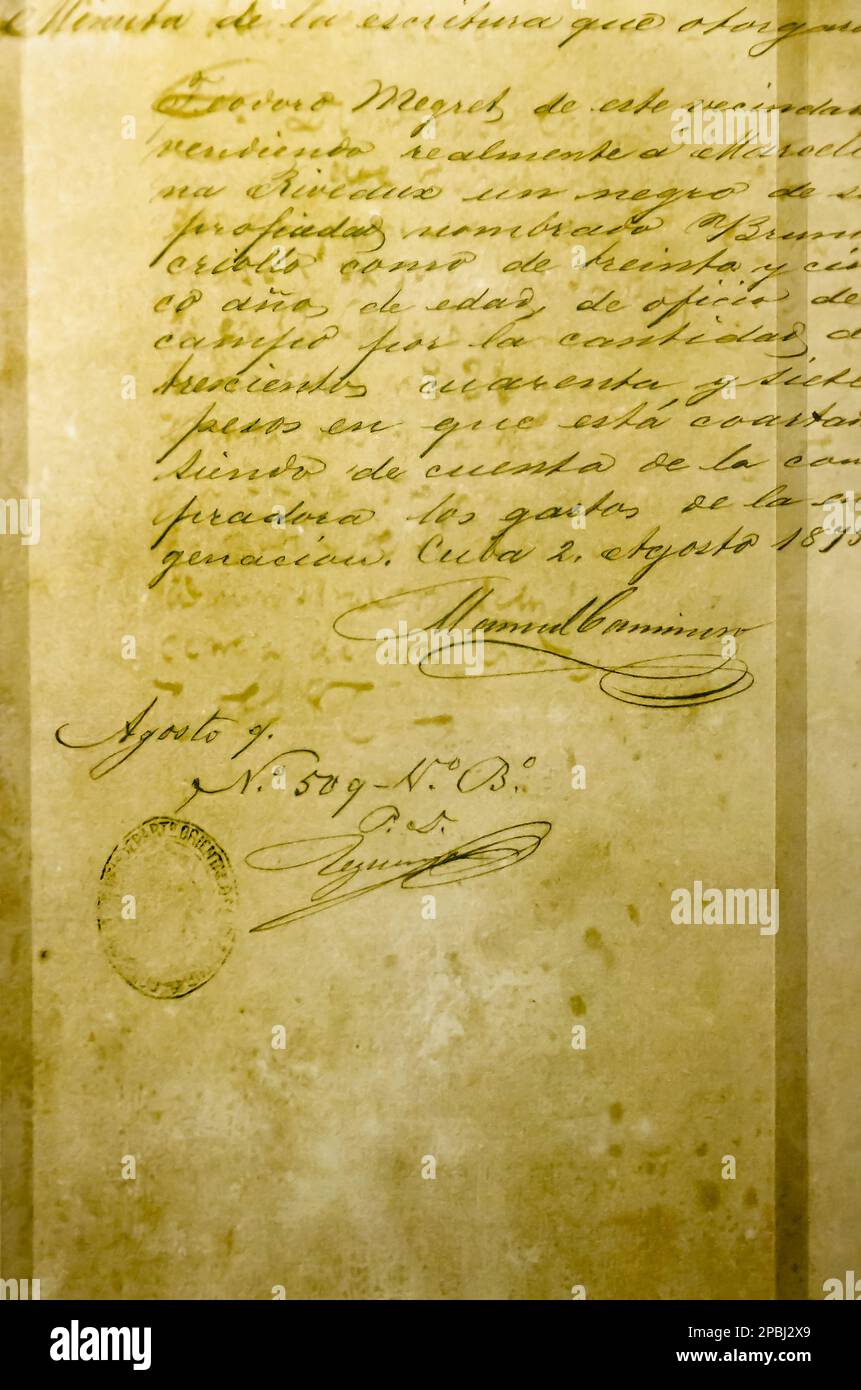 Minuta de la escritura que otorgara
Teodoro Megret, de este vecindad
vendiendo realmente á Marceli
na Riveaux un negro de s
propiedad nombrado Brun
criollo como de treinta y cin
co años de edad, de oficio de
campo por la cantidad d
trescientos cuarenta y siete
pesos en que está coarta
siendo de cuenta de la com
pradora los gastos de la e
genacion. Cuba 2. Agosto 187
Manuel Caminero
Agosto 9.
N.o 509 - V.o B.o
P. D.
alamy
Image ID: 2PBJ2X9
www.alamy.com